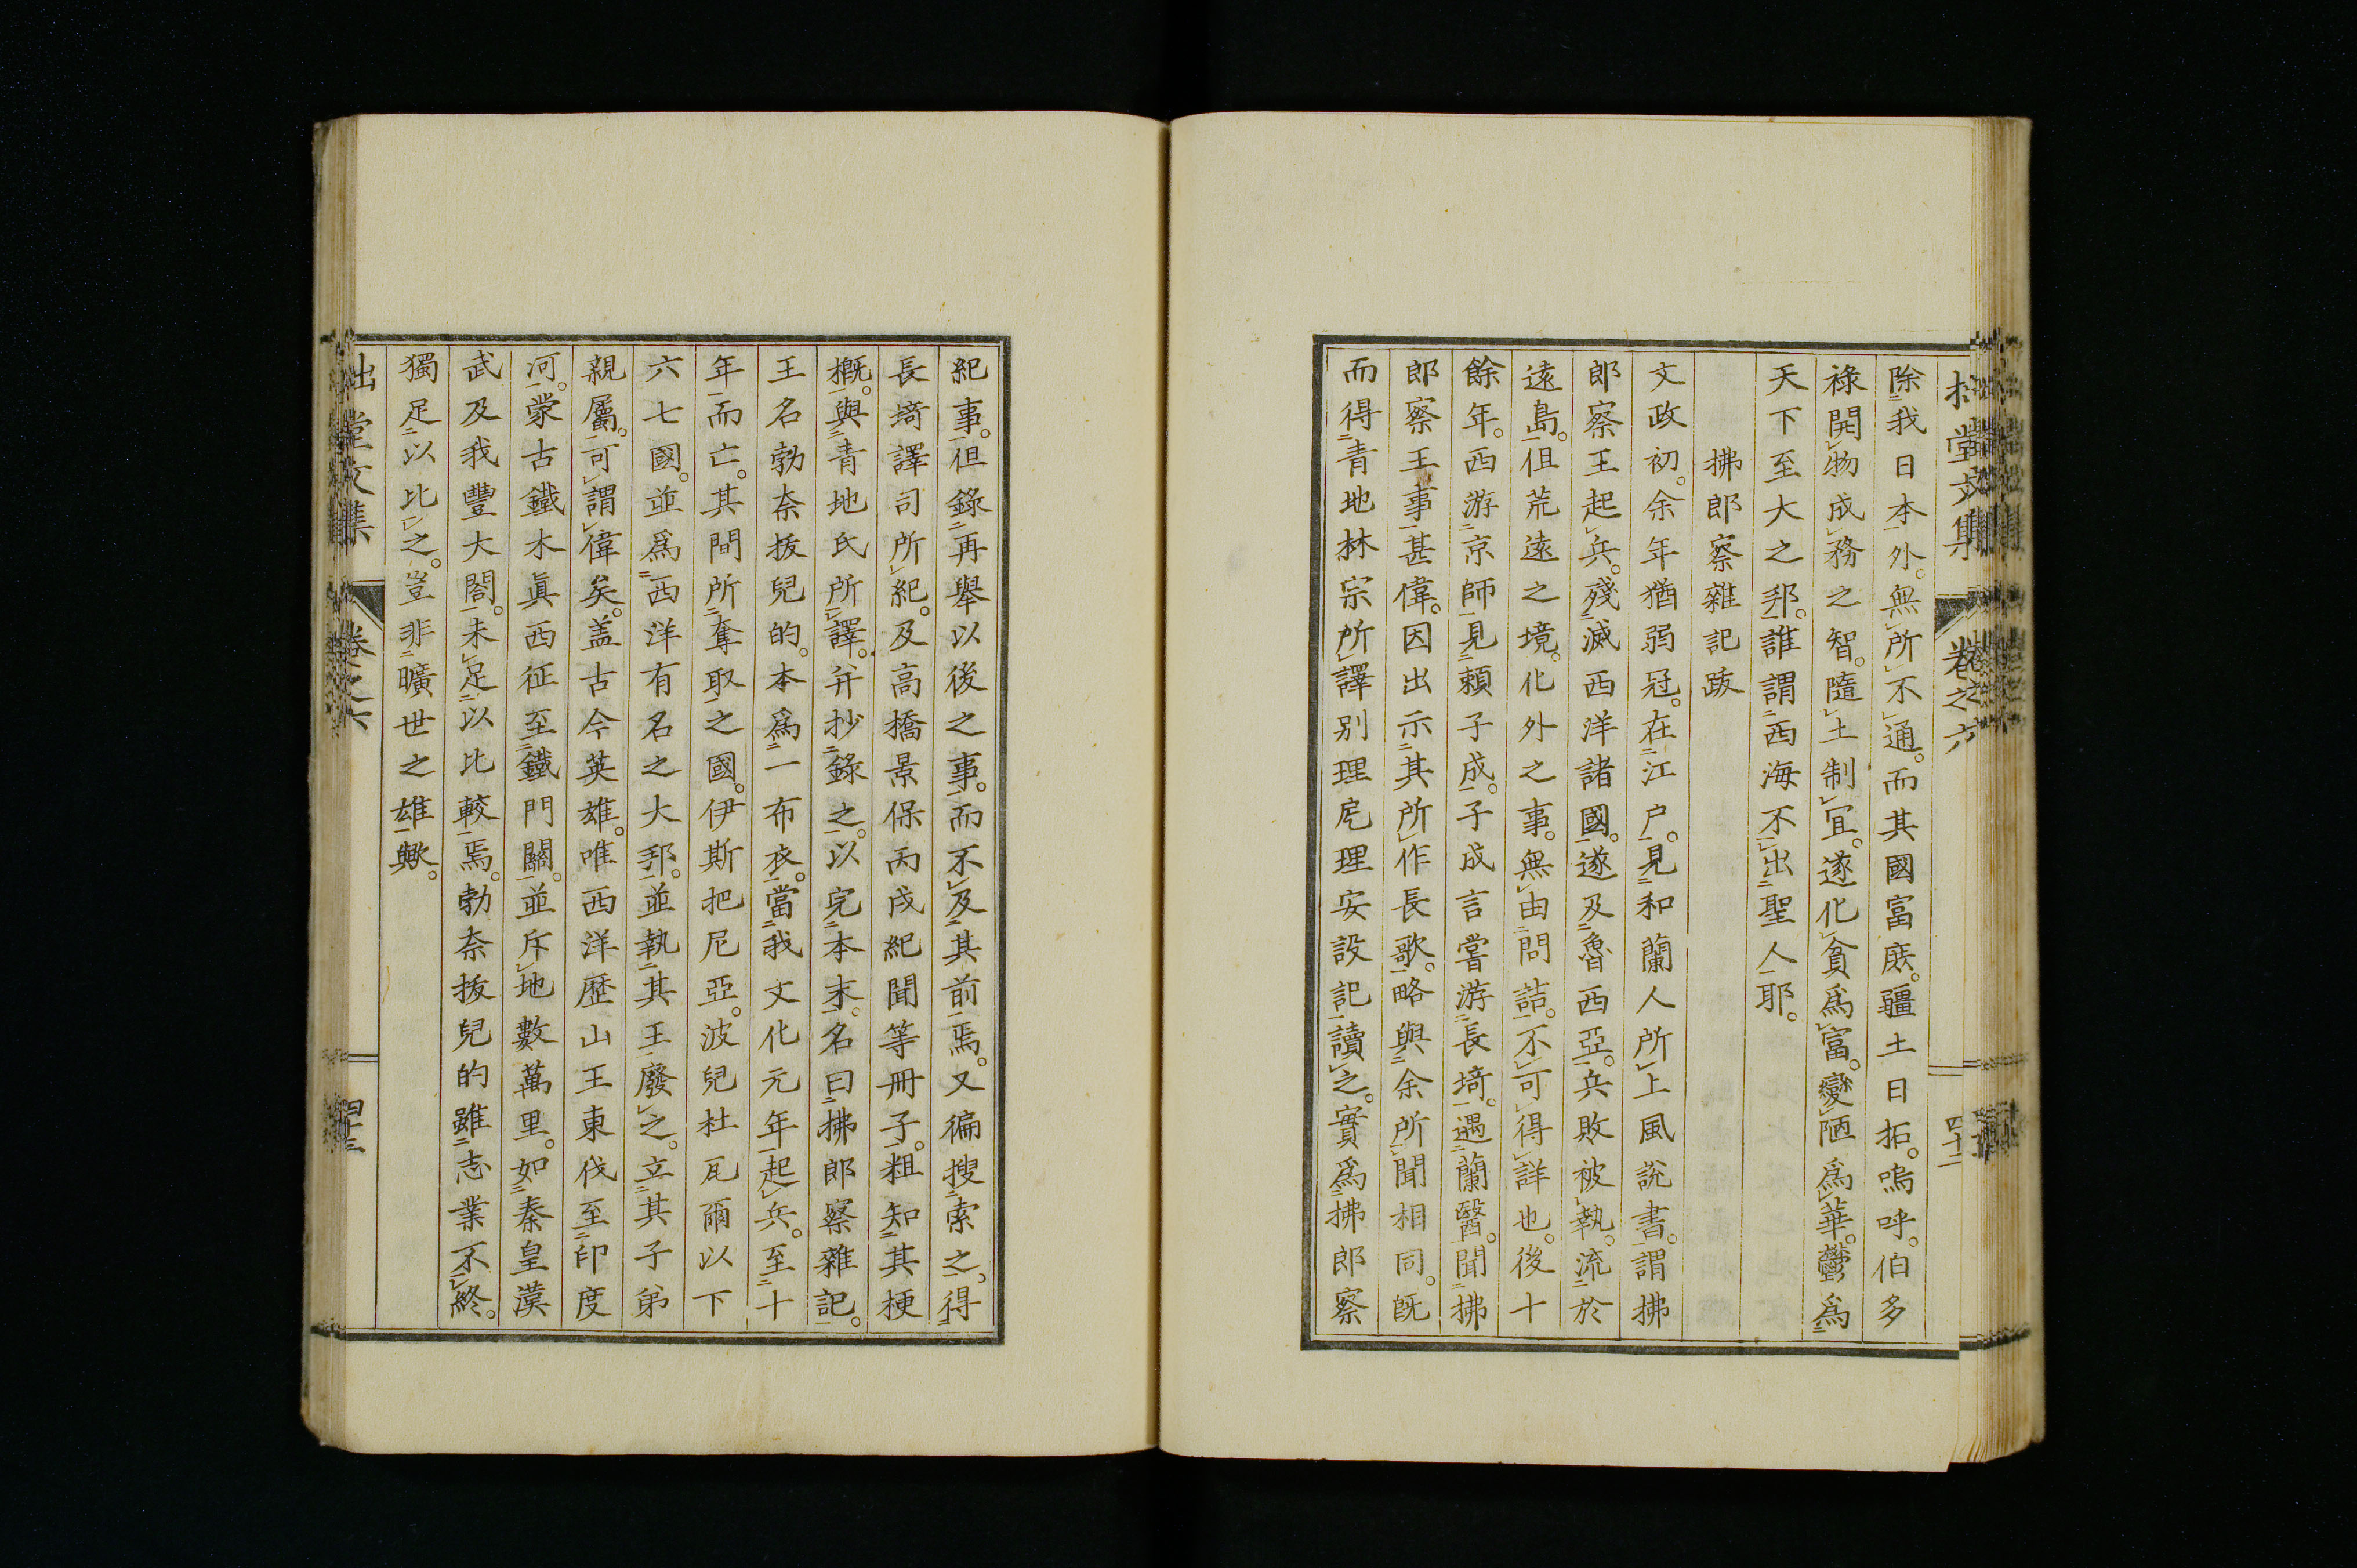 除我日本外。無所不通。而其國富庶。疆土日拓。嗚呼。伯多
祿開物成務之智。隨土制宜。遂化貧爲富。變陋爲華。鬱爲
天下至大之邦。誰謂西海不出聖人耶。
拂郎察雜記跋
文政初。余年猶弱冠。在江戶。見和蘭人所上風說書。謂拂
郎察王起兵。殘滅西洋諸國。遂及魯西亞。兵敗被執。流於
遠島。但荒遠之境。化外之事。無由問詰。不可得詳也。後十
餘年。西游京師見賴子成。子成言嘗游長埼。遇蘭醫。聞拂
郎察王事甚偉。因出示其所作長歌。略與余所聞相同。既
而得青地林宗所譯別埋戹理安設記讀之。實爲拂郎察
紀事。但錄再舉以後之事。而不及其前焉。又徧搜索之。得
長埼譯司所紀。及高橋景保丙戌紀聞等冊子。粗知其梗
概。與青地氏所譯。并抄錄之。以完本末。名曰拂郎察雜記。
王名勃奈拔兒的。本爲一布衣。當我文化元年起兵。至十
年而亡。其間所奪取之國。伊斯把尼亞。波兒杜瓦爾以下
六七國。並爲西洋有名之大邦。並執其王廢之。立其子弟
親屬。可謂偉矣。蓋古今英雄。唯西洋歷山王東伐至印度
河。蒙古鐵木眞西征至鐵門關。並斥地數萬里。如秦皇漢
武及我豐大閤。未足以比較焉。勃奈拔兒的雖志業不終。
獨足以比之。豈非曠世之雄歟。
堂文集
卷之六
四十二